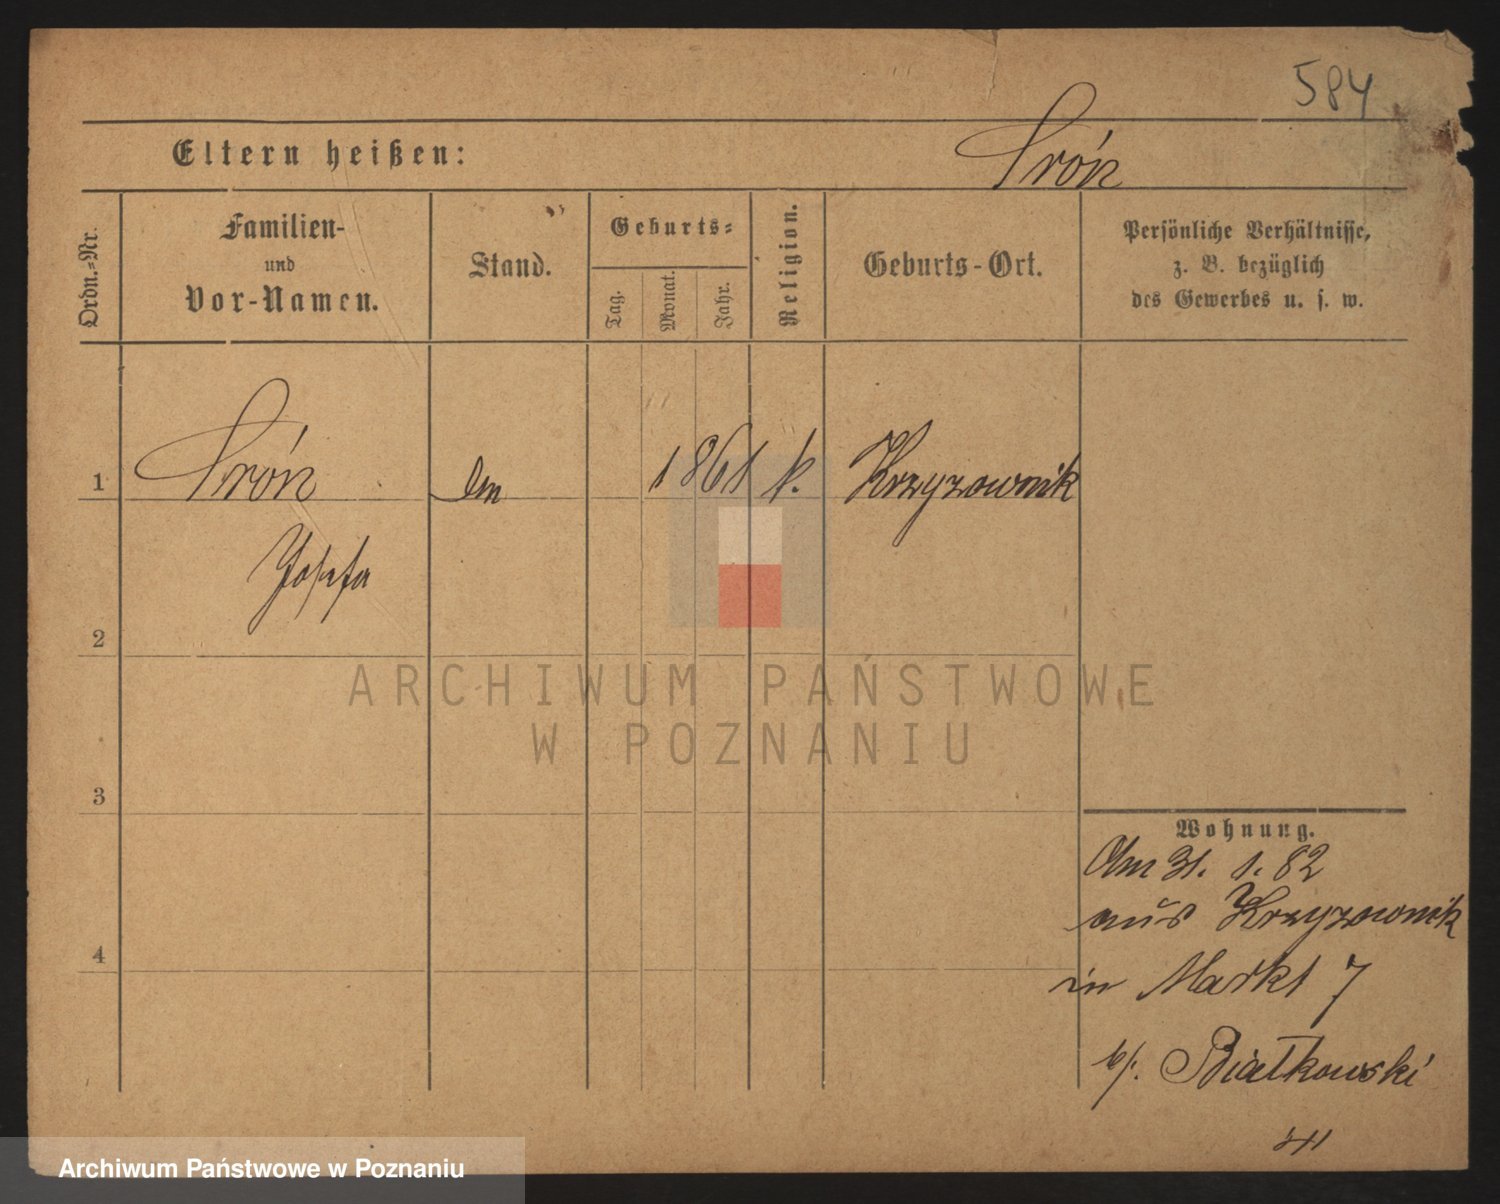 584
Eltern heißen:
Srón
Ordn.-Nr.
Familien-
und
Vor-Namen.
Stand.
Geburts-
Tag.
Monat.
Jahr.
Religion.
Geburts-Ort.
Persönliche Verhältnisse,
z. B. bezüglich
des Gewerbes u. s. w.
1 Srón 1861 k. Krzyzownik
Josefa
2
3
4
Wohnung.
Am 31. 1. 82
aus Krzyzownik
in Markt 7
b/. Białkowski
ARCHIWUM PAŃSTWOWE
W POZNANIU
Archiwum Państwowe w Poznaniu